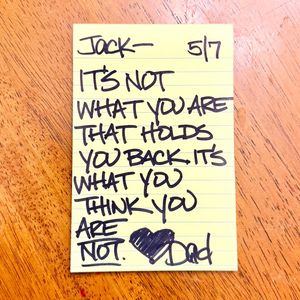 JACK— 5/7
IT'S NOT
WHAT YOU ARE
THAT HOLDS
YOU BACK. IT'S
WHAT YOU
THINK YOU
ARE
NOT. Dad